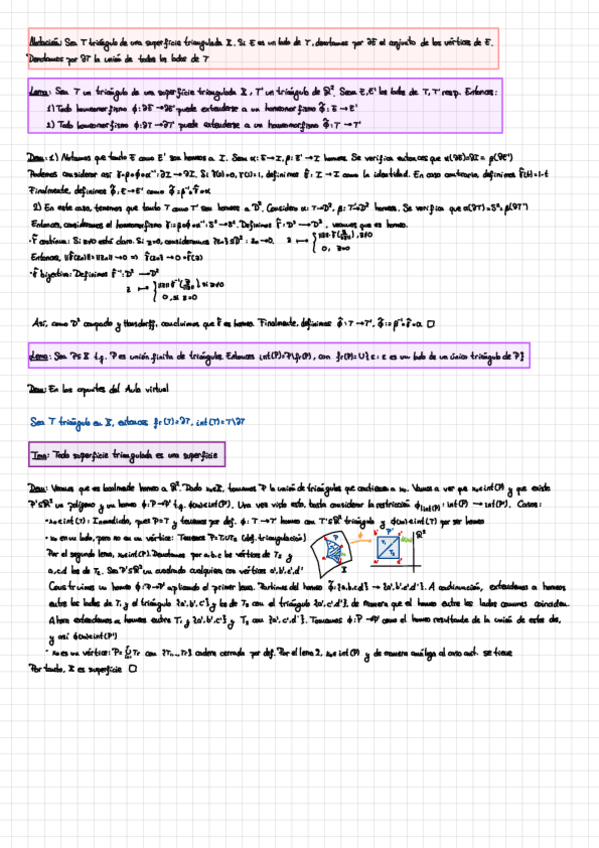 Notación: Sea T triángulo de una superficie triangulada X. Si E es un lado de T, denotamos por ∂E el conjunto de los vértices de E.
Denotamos por ∂T la unión de todos los lados de T
Lema: Sea T un triángulo de una superficie triangulada X, T' un triángulo de R². Sean E, E' los lados de T, T' resp. Entonces:
1) Todo homeomorfismo ϕ: ∂E → ∂E' puede extenderse a un homeomorfismo ϕ̃: E → E'
2) Todo homeomorfismo ϕ: ∂T → ∂T' puede extenderse a un homeomorfismo ϕ̃: T → T'
Dem: 1) Notamos que tanto E como E' son homeos a I. Sean α: E → I, β: E' → I homeos. Se verifica entonces que α(∂E) = ∂I = β(∂E')
Podemos considerar así γ = β∘ϕ∘α⁻¹: ∂I → ∂I. Si γ(0)=0, γ(1)=1, definimos γ̃: I → I como la identidad. En caso contrario, definimos γ̃(t)=1-t
Finalmente, definimos ϕ̃: E → E' como ϕ̃ = β⁻¹∘γ̃∘α
2) En este caso, tenemos que tanto T como T' son homeos a D². Considero α: T → D², β: T' → D² homeos. Se verifica que α(∂T) = S¹ = β(∂T')
Entonces, consideramos el homeomorfismo γ = β∘ϕ∘α⁻¹: S¹ → S¹. Definimos γ̃: D² → D², veamos que es homeo.
· γ̃ continua: Si z≠0 está claro. Si z=0, consideramos
0, z=0
Entonces, → 0 ⇒ γ̃(zₙ) → 0 = γ̃(z)
· γ̃ bijectiva: Definimos γ̃⁻¹: D² → D²
0, si z=0
Así, como D² compacto y Hausdorff, concluimos que γ̃ es homeo. Finalmente, definimos ϕ̃: T → T', ϕ̃ = β⁻¹∘γ̃∘α □
Lema: Sea P⊆X t.q. P es unión finita de triángulos. Entonces int(P) = P\fr(P), con fr(P) = U{E: E es un lado de un único triángulo de P}
Dem: En los apuntes del Aula virtual
Sea T triángulo en X, entonces fr(T) = ∂T, int(T) = T\∂T
Tma: Toda superficie triangulada es una superficie
Dem: Veamos que es localmente homeo a R². Dado x₀∈X, tomamos P la unión de triángulos que contienen a x₀. Vamos a ver que x₀∈int(P) y que existe
P'⊆R² un polígono y un homeo ϕ: P → P' t.q. ϕ(x₀)∈int(P'). Una vez visto esto, basta considerar la restricción ϕ|int(P): int(P) → int(P'). Casos:
· x₀∈int(T): Inmediato, pues P=T y tenemos por def. ϕ: T → T' homeo con T'⊆R² triángulo y ϕ(x₀)∈int(T') por ser homeo
· x₀ en un lado, pero no en un vértice: Tenemos P=T₁∪T₂ (def. triangulación)
Por el segundo lema, x₀∈int(P). Denotamos por a,b,c los vértices de T₁ y
a,c,d los de T₂. Sea P'⊆R² un cuadrado cualquiera con vértices a',b',c',d'
Construimos un homeo ϕ: P → P' aplicando el primer lema. Partimos del homeo ϕ̃: {a,b,c,d} → {a',b',c',d'}. A continuación, extendemos a homeos
entre los lados de T₁ y el triángulo {a',b',c'} y los de T₂ con el triángulo {a',c',d'}, de manera que el homeo entre los lados comunes coincidan.
Ahora extendemos a homeos entre T₁ y {a',b',c'} y T₂ con {a',c',d'}. Tomamos ϕ: P → P' como el homeo resultante de la unión de estos dos,
y así ϕ(x₀)∈int(P')
· x₀ es un vértice: con {T₁,...,Tᵣ} cadena cerrada por def. Por el lema 2, x₀∈int(P) y de manera análoga al caso ant. se tiene
Por tanto, X es superficie □